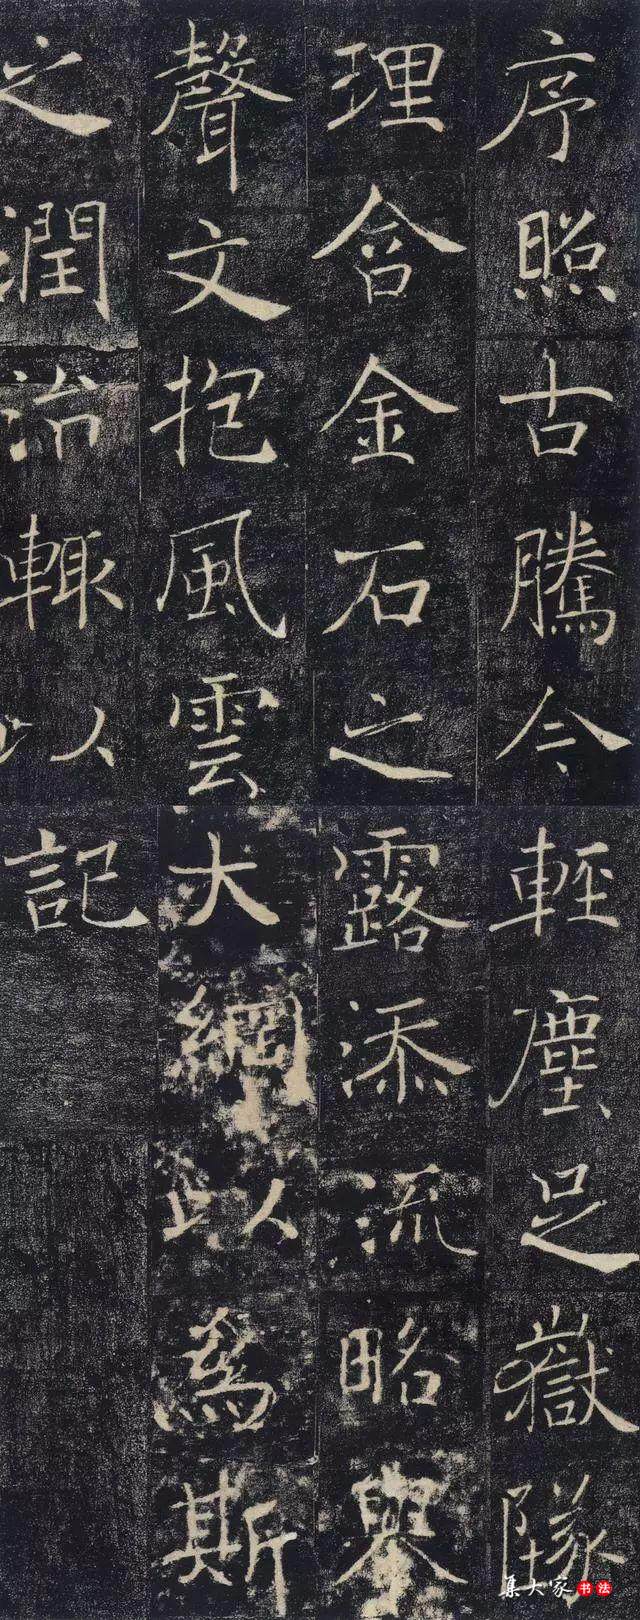 序照古騰今
理含金石之
聲文抱風雲
之潤治輒以
輕塵足嶽墜
露添流略舉
大綱以爲斯
記
集大家书法